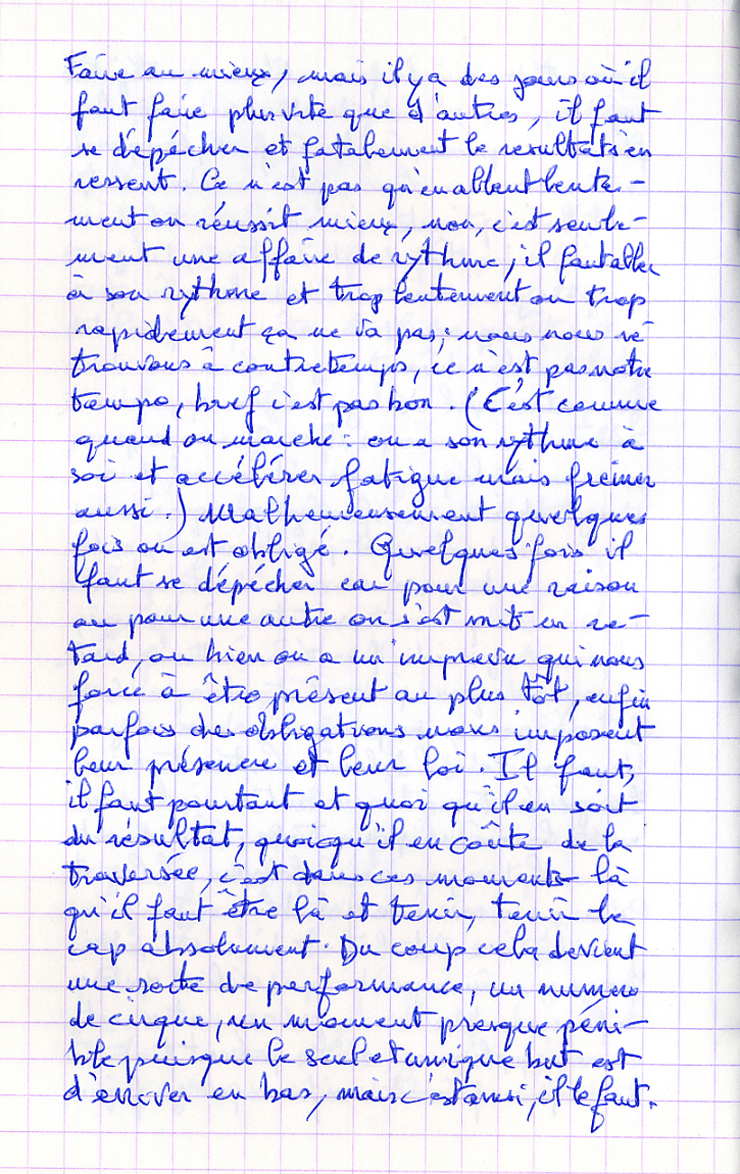 Faire au mieux, mais il y a des jours où il
faut faire plus vite que d'autres, il faut
se dépécher et fatalement le resultat s'en
ressent. Ce n'est pas qu'en allant lente-
ment on réussit mieux, non, c'est seule-
ment une affaire de rythme, il faut aller
à son rythme et trop lentement ou trop
rapidement ça ne va pas; nous nous re-
trouvons à contretemps, ce n'est pas notre
tempo, bref c'est pas bon. (C'est comme
quand on marche: on a son rythme à
soi et accélérer fatigue mais freiner
aussi.) Malheureusement quelques
fois on est obligé. Quelques fois il
faut se dépécher car pour une raison
ou pour une autre on s'est mit en re-
tard, ou bien on a un imprevu qui nous
force à être présent au plus tôt, enfin
parfois des obligations nous imposent
leur présence et leur loi. Il faut,
il faut pourtant et quoi qu'il en soit
du résultat, quoiqu'il en coûte de la
traversée, c'est dans ces moments-là
qu'il faut être là et tenir, tenir le
cap absolument. Du coup cela devient
une sorte de performance, un numero
de cirque, un moment presque péni-
ble puisque le seul et unique but est
d'arriver en bas, mais c'est ainsi, il le faut.